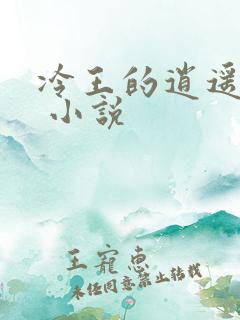 冷王的逍遥
小説
王寵惠
未经同意禁止转载